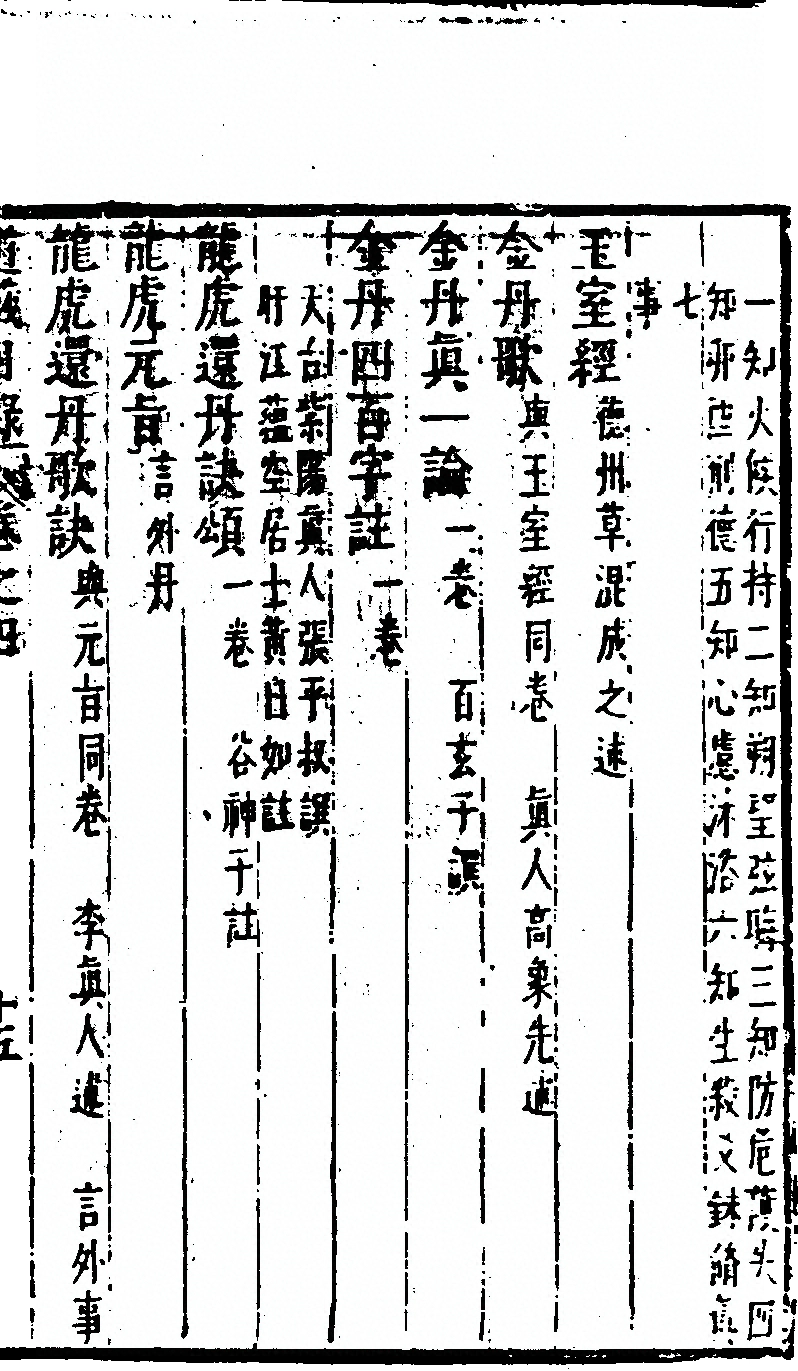 一知火候行持二知朔望弦晦三知防危護失四
知刑德五知心慮沐浴六知生殺反
七
事
玉室經德州草混成之述
金丹歌與玉室經同卷 真人高象先述
金丹眞一論一卷 百玄子譔
金丹四百字註一卷
天台紫陽眞人張平叔譔
盱江蘊空居士黃自如註
龍虎還丹訣頌一卷 谷神子註
龍虎元旨言外丹
龍虎還丹歌訣與元旨同卷 李眞人述 言外事
道藏目錄卷之四 十五